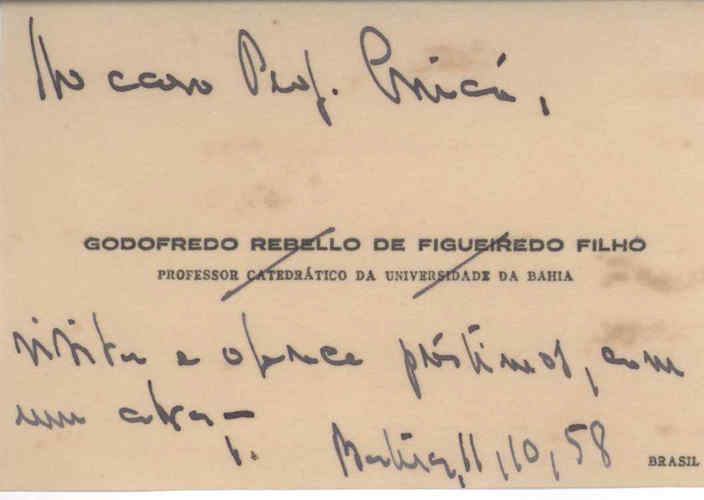 Ao caro Prof.
GODOFREDO REBELLO DE FIGUEIREDO FILHO
PROFESSOR CATEDRÁTICO DA UNIVERSIDADE DA BAHIA
visita e oferece préstimos, com
um abraço.
Bahia, 11, 10, 58
BRASIL